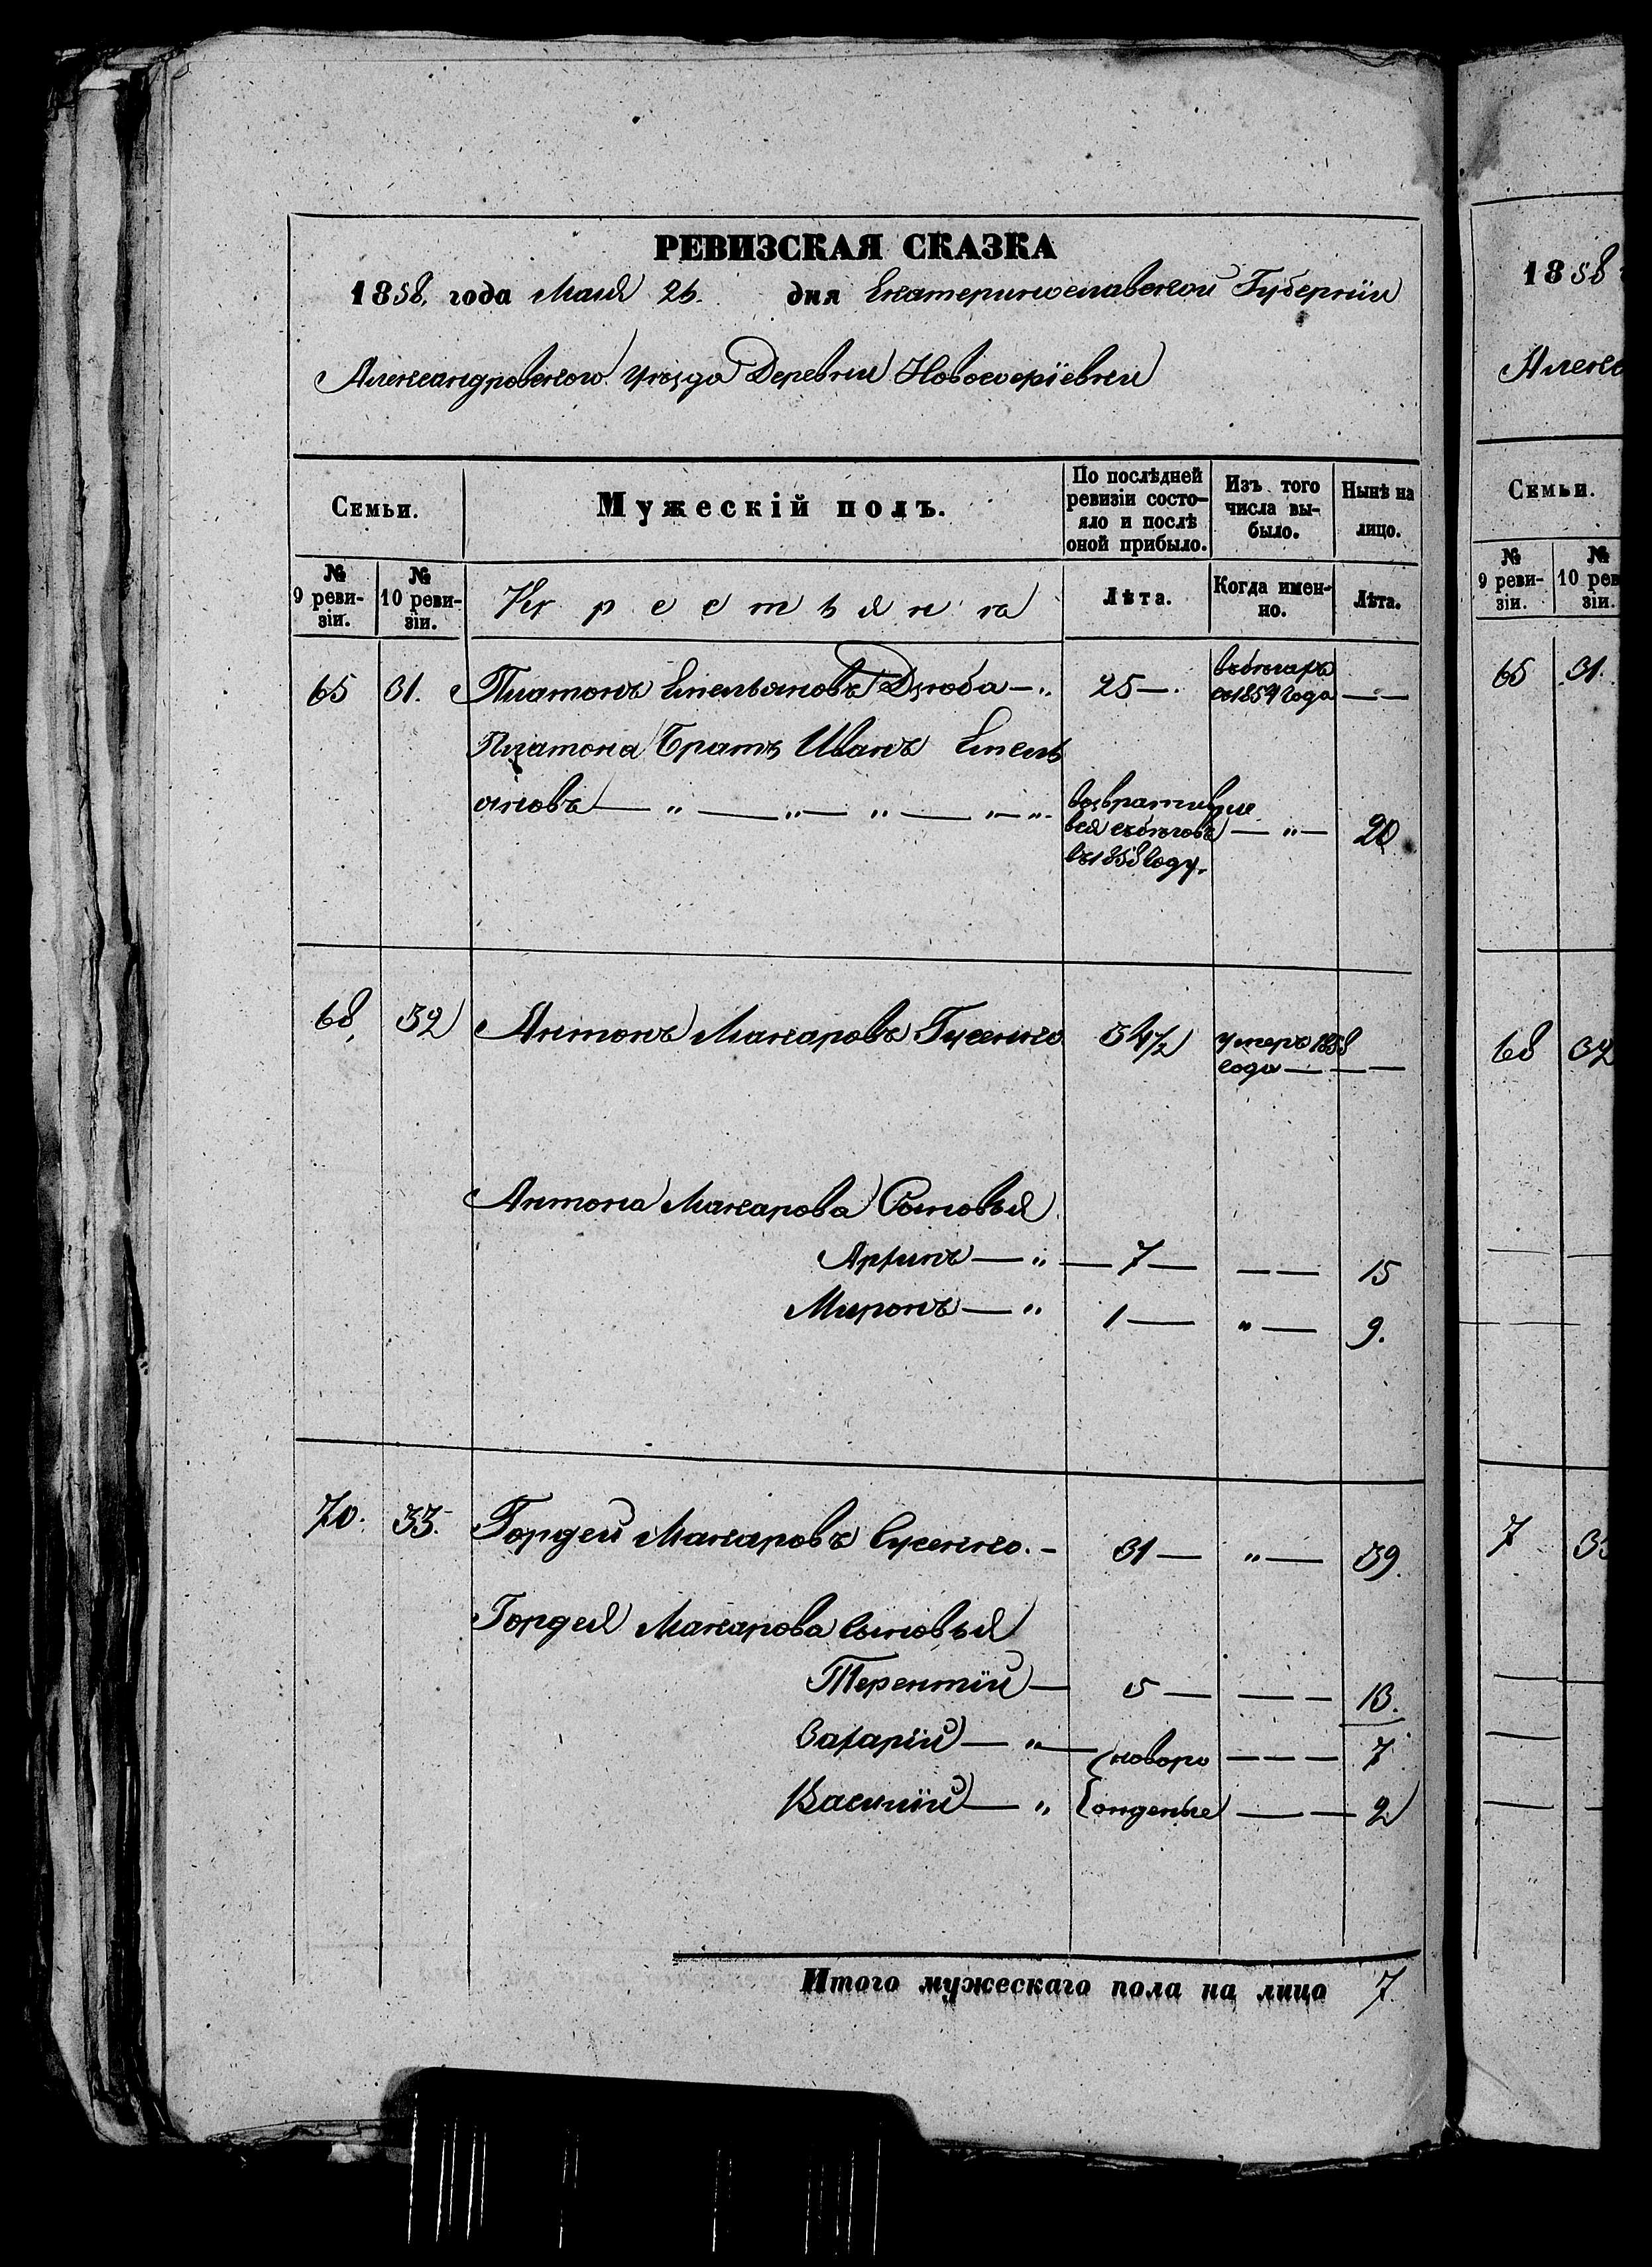 РЕВИЗСКАЯ СКАЗКА
1858. года Мая 26. дня Екатеринославской Губерніи
Александровского Уѣзда Деревни Новосергіевки
Семьи.
Мужескій полъ.
По послѣдней ревизіи состояло и послѣ оной прибыло.
Изъ того числа выбыло.
Нынѣ на лицо.
№ 9 ревизіи.
№ 10 ревизіи.
Крестьяна
Лѣта.
Когда именно.
Лѣта.
65 31. Платонъ Емельяновъ Дзюба — 25 — въ бѣгахъ
съ 1854 года — —
Платона Братъ Иванъ Емель
яновъ — „ — „ — „ — „ — возвратившіе
вся съ бѣговъ — „ — 20
въ 1858 году.
68, 32 Антонъ Макаровъ Гусенко 34½ умеръ 1858
года — — —
Антона Макарова Сыновья
Архипъ — „ — 7 — — — 15
Миронъ — „ 1 — „ — 9.
70. 33. Гордей Макаровъ Гусенко. — 31 — „ — 39.
Гордея Макарова Сыновья
Терентій — 5 — — — 13.
Захарій — „ — новоро — — — 7
Василій — „ жденые — — 2
Итого мужескаго пола на лицо 7.
1858
Алекс
Семьи.
№ 9 ревизіи.
№ 10 рев
зіи.
65 31.
68 32
7 33